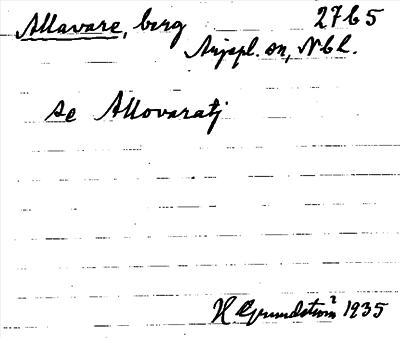 Allavare, berg 27b5
Arjepl. sn, Nbl.
se Allovaratj
H Grundström 1935